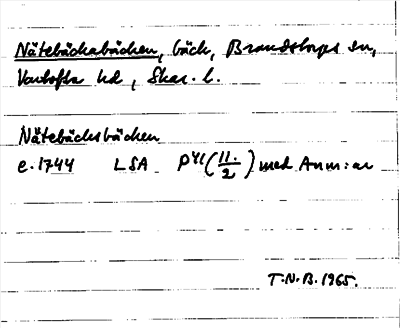 Nätebäcksbäcken, bäck, Brandstorps sn,
Vartofta hd, Skar. l.
Nätebäcksbäcken
e. 1744 LSA P41 (11./2) med Anm:ar
T.N.B. 1965.